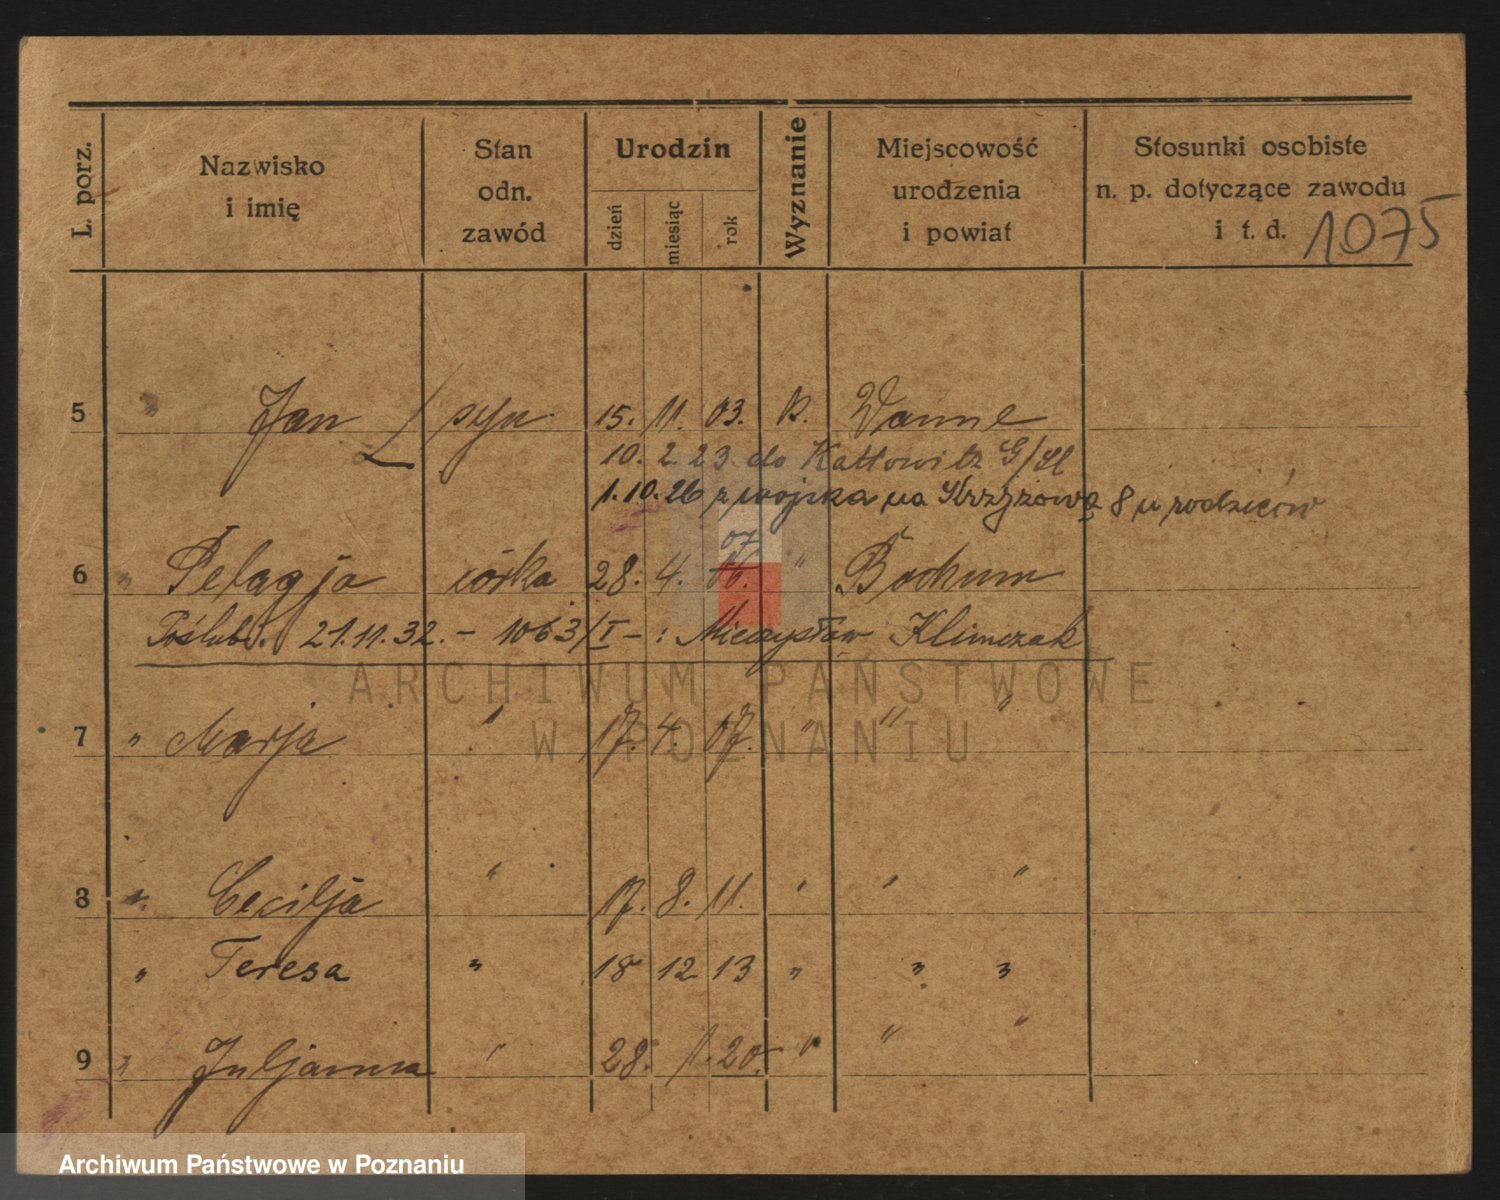 L. porz. Nazwisko i imię Stan odn. zawód Urodzin dzień miesiąc rok Wyznanie Miejscowość urodzenia i powiat Stosunki osobiste n. p. dotyczące zawodu i t. d. 1075
5 " Jan syn 15. 11. 03. k. Wanne
10. 2. 23. do Kattowitz G/Sl
1.10.26 z wojska na Krzyżową 8 u rodziców
07
6 " Pelagja córka 28. 4. 06. " Bochum
Poślub. 21.11.32. - 1063/I - : Mieczysław Klimczak
7 " Marja " 17. 4. 07. " " "
8 " Cecilja " 17. 8. 11. " " "
" Teresa " 18 12 13 " " "
9 " Juljanna " 28. 1. 20. " " "
ARCHIWUM PAŃSTWOWE
W POZNANIU
Archiwum Państwowe w Poznaniu